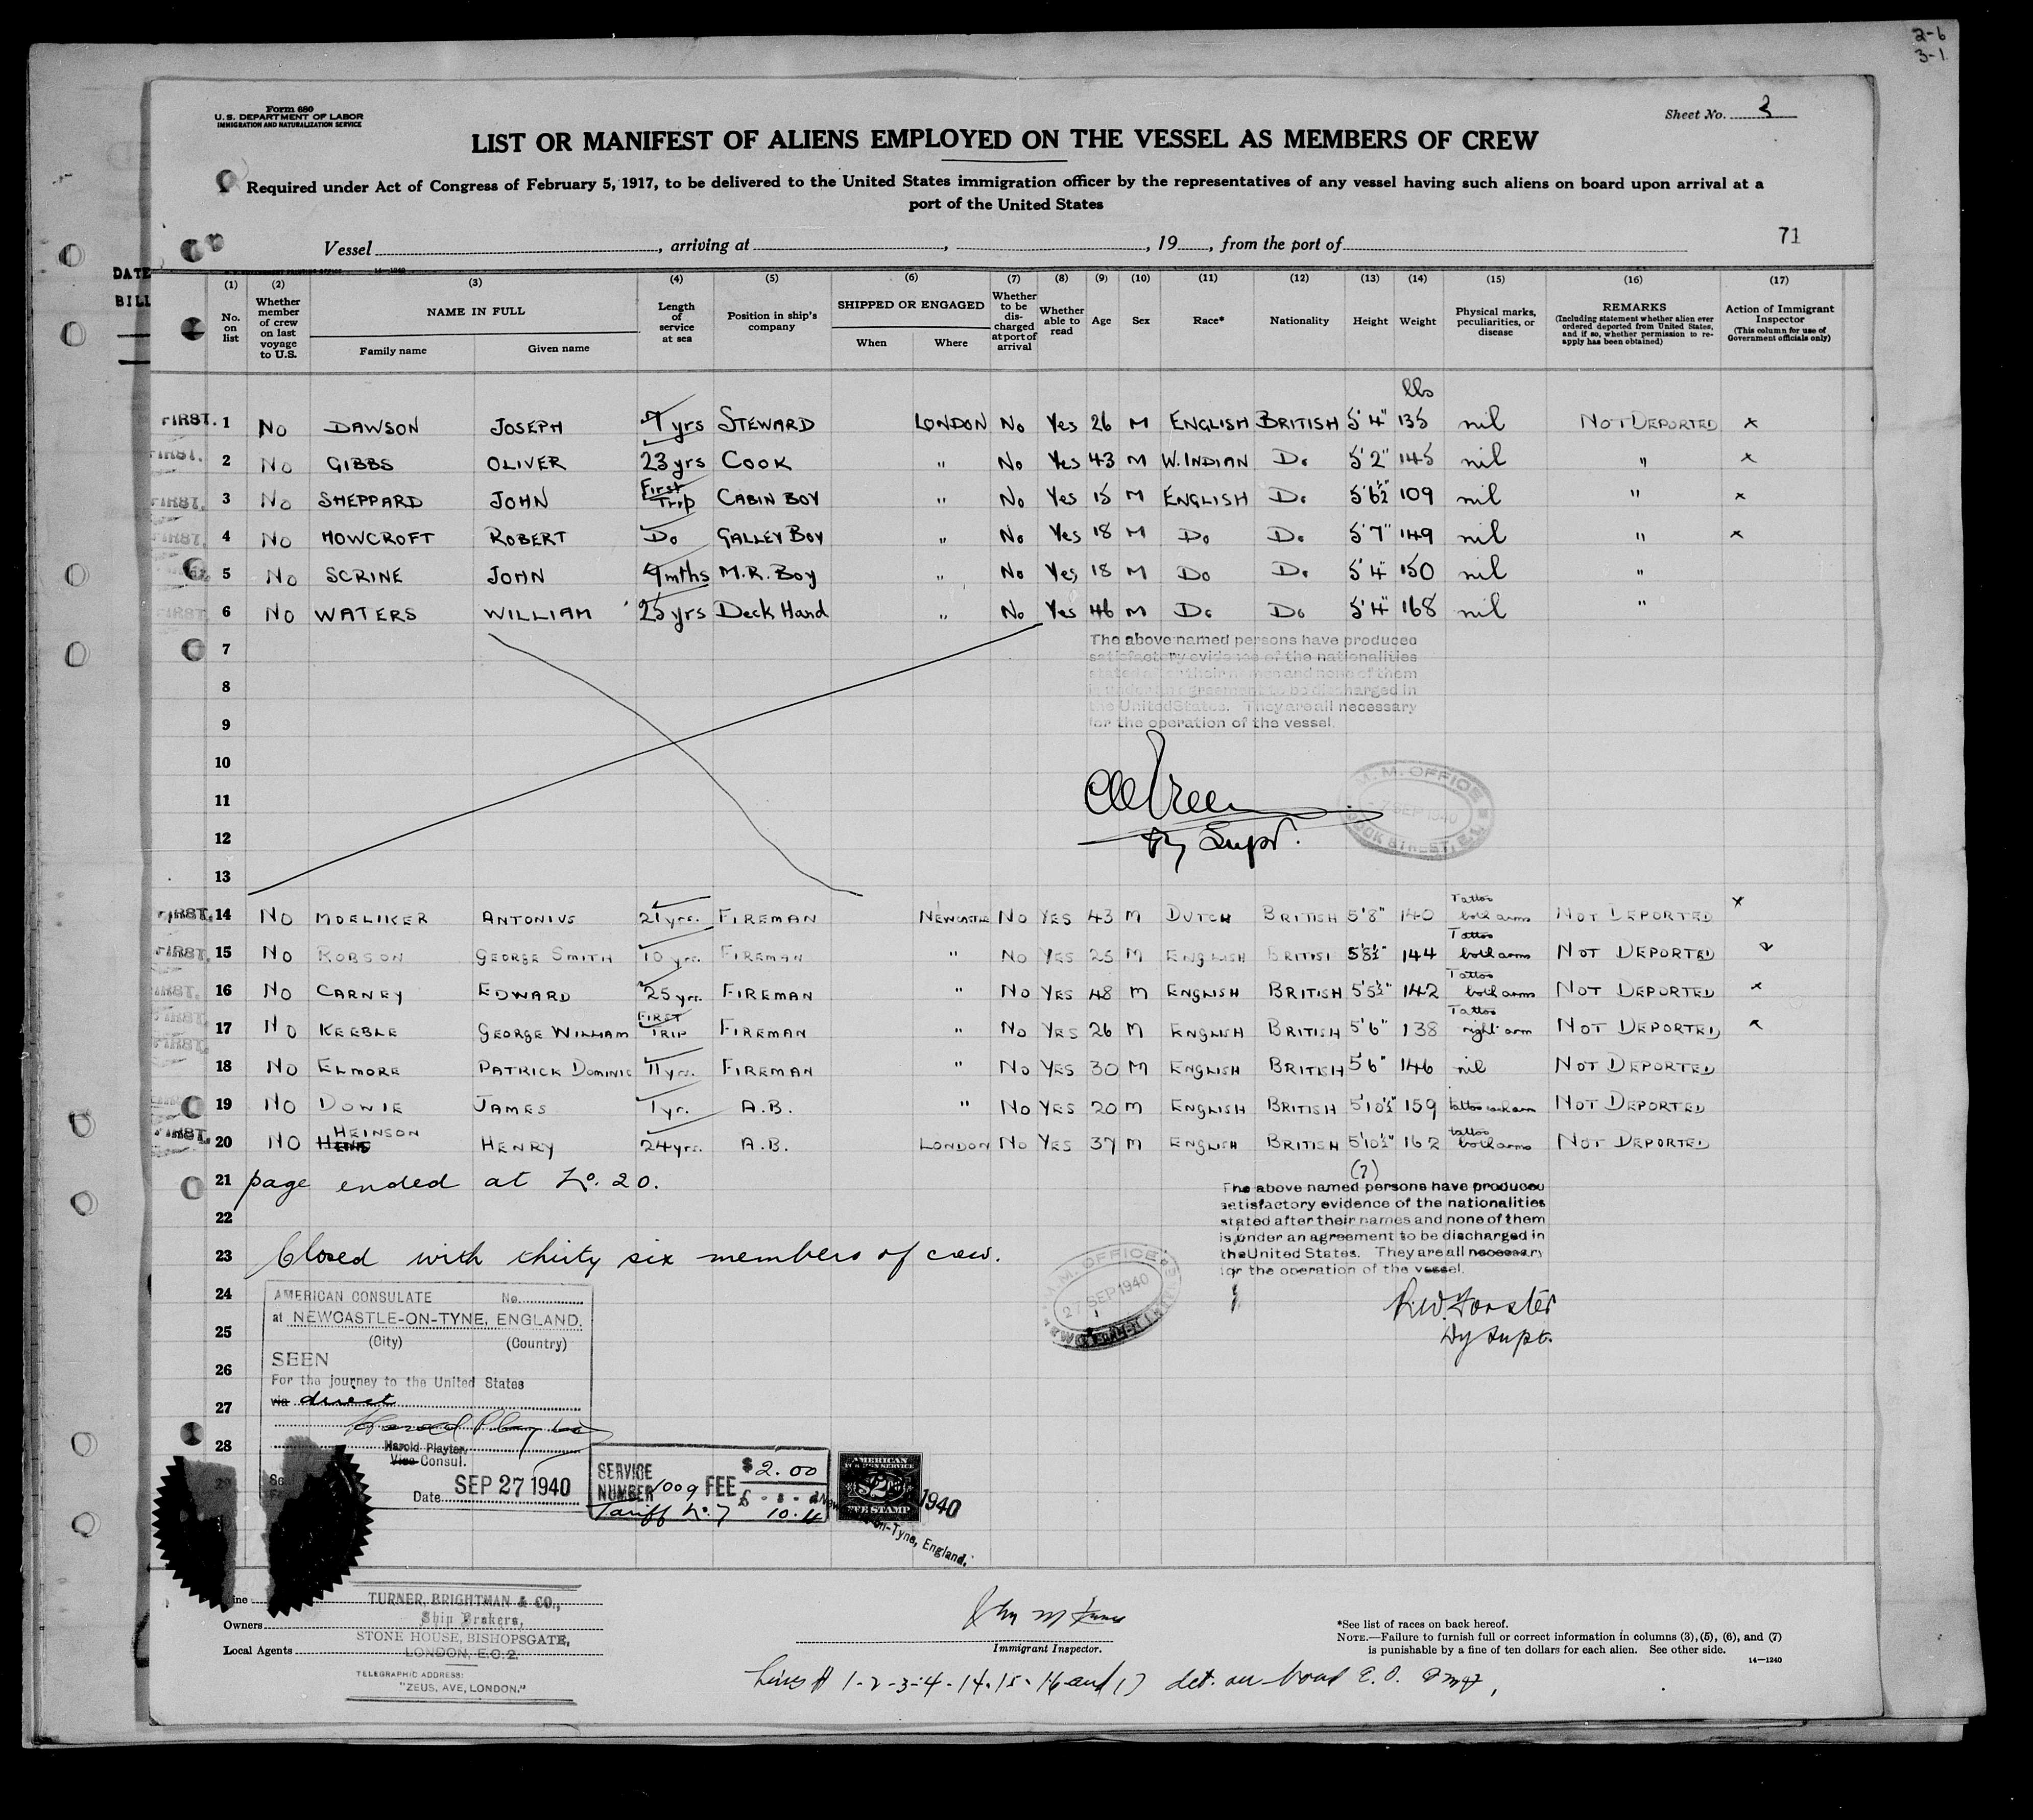 2-6
3-1
Form 680
U. S. DEPARTMENT OF LABOR
IMMIGRATION AND NATURALIZATION SERVICE
Sheet No. 3
LIST OR MANIFEST OF ALIENS EMPLOYED ON THE VESSEL AS MEMBERS OF CREW
Required under Act of Congress of February 5, 1917, to be delivered to the United States immigration officer by the representatives of any vessel having such aliens on board upon arrival at a
port of the United States
Vessel , arriving at , , 19 , from the port of
71
DATE
BILL
(1) (2) (3) (4) (5) (6) (7) (8) (9) (10) (11) (12) (13) (14) (15) (16) (17)
No. on list
Whether member of crew on last voyage to U.S.
NAME IN FULL
Family name Given name
Length of service at sea
Position in ship's company
SHIPPED OR ENGAGED
When Where
Whether to be discharged at port of arrival
Whether able to read
Age
Sex
Race*
Nationality
Height
Weight
Physical marks, peculiarities, or disease
REMARKS
(Including statement whether alien ever ordered deported from United States, and if so, whether permission to reapply has been obtained)
Action of Immigrant Inspector
(This column for use of Government officials only)
lbs
FIRST. 1 No DAWSON JOSEPH 7 yrs STEWARD LONDON No Yes 26 M ENGLISH BRITISH 5'4" 135 nil NOT DEPORTED x
FIRST. 2 No GIBBS OLIVER 23 yrs COOK " No Yes 43 M W. INDIAN Do 5'2" 145 nil " x
FIRST. 3 No SHEPPARD JOHN First Trip CABIN BOY " No Yes 15 M ENGLISH Do 5'6½" 109 nil " x
FIRST. 4 No HOWCROFT ROBERT Do GALLEY BOY " No Yes 18 M Do Do 5'7" 149 nil " x
5 No SCRINE JOHN 9 mths M.R. Boy " No Yes 18 M Do Do 5'4" 150 nil "
FIRST 6 No WATERS WILLIAM 25 yrs Deck Hand " No Yes 46 M Do Do 5'4" 168 nil "
7
8
9
10
11
12
13
The above named persons have produced
satisfactory evidence of the nationalities
stated after their names and none of them
is under an agreement to be discharged in
the United States. They are all necessary
for the operation of the vessel.
Dy Supt.
M. M. OFFICE
SEP 1940
FIRST. 14 No MOELIKER ANTONIUS 21 yrs. FIREMAN NEWCASTLE No YES 43 M DUTCH BRITISH 5'8" 140 Tattoo both arms NOT DEPORTED x
FIRST. 15 No ROBSON GEORGE SMITH 10 yrs. FIREMAN " No YES 25 M ENGLISH BRITISH 5'8½" 144 Tattoo both arms NOT DEPORTED
FIRST. 16 No CARNEY EDWARD 25 yrs. FIREMAN " No YES 48 M ENGLISH BRITISH 5'5½" 142 Tattoo both arms NOT DEPORTED x
FIRST. 17 No KEEBLE GEORGE WILLIAM FIRST TRIP FIREMAN " No YES 26 M ENGLISH BRITISH 5'6" 138 Tattoo right arm NOT DEPORTED x
FIRST. 18 No ELMORE PATRICK DOMINIC 11 yrs. FIREMAN " No YES 30 M ENGLISH BRITISH 5'6" 146 nil NOT DEPORTED
19 No DOWIE JAMES 1 yr. A.B. " No YES 20 M ENGLISH BRITISH 5'10½" 159 tattoo each arm NOT DEPORTED
FIRST. 20 No HEINSON HENRY 24 yrs. A.B. LONDON No YES 37 M ENGLISH BRITISH 5'10½" 162 tattoo both arms NOT DEPORTED
21 page ended at No. 20.
22
23 Closed with thirty six members of crew.
24
25
26
27
28
29
(7)
The above named persons have produced
satisfactory evidence of the nationalities
stated after their names and none of them
is under an agreement to be discharged in
the United States. They are all necessary
for the operation of the vessel.
R.W. Forster
Dy Supt.
M.M. OFFICE
27 SEP 1940
AMERICAN CONSULATE No.
at NEWCASTLE-ON-TYNE, ENGLAND.
(City) (Country)
SEEN
For the journey to the United States
via direct
Harold Playter
Harold Playter,
Vice Consul.
Date SEP 27 1940
SERVICE NUMBER 1009 FEE $ 2.00
Tariff No. 7 10.4
AMERICAN
FEE STAMP
1940
on-Tyne, England.
Line
Owners
Local Agents
TURNER, BRIGHTMAN & CO.,
Ship Brokers,
STONE HOUSE, BISHOPSGATE,
LONDON, E.C.2.
TELEGRAPHIC ADDRESS:
"ZEUS, AVE, LONDON."
Immigrant Inspector.
*See list of races on back hereof.
NOTE.—Failure to furnish full or correct information in columns (3), (5), (6), and (7)
is punishable by a fine of ten dollars for each alien. See other side.
14—1240
Lines # 1-2-3-4-14-15-16 and 17 det. on board